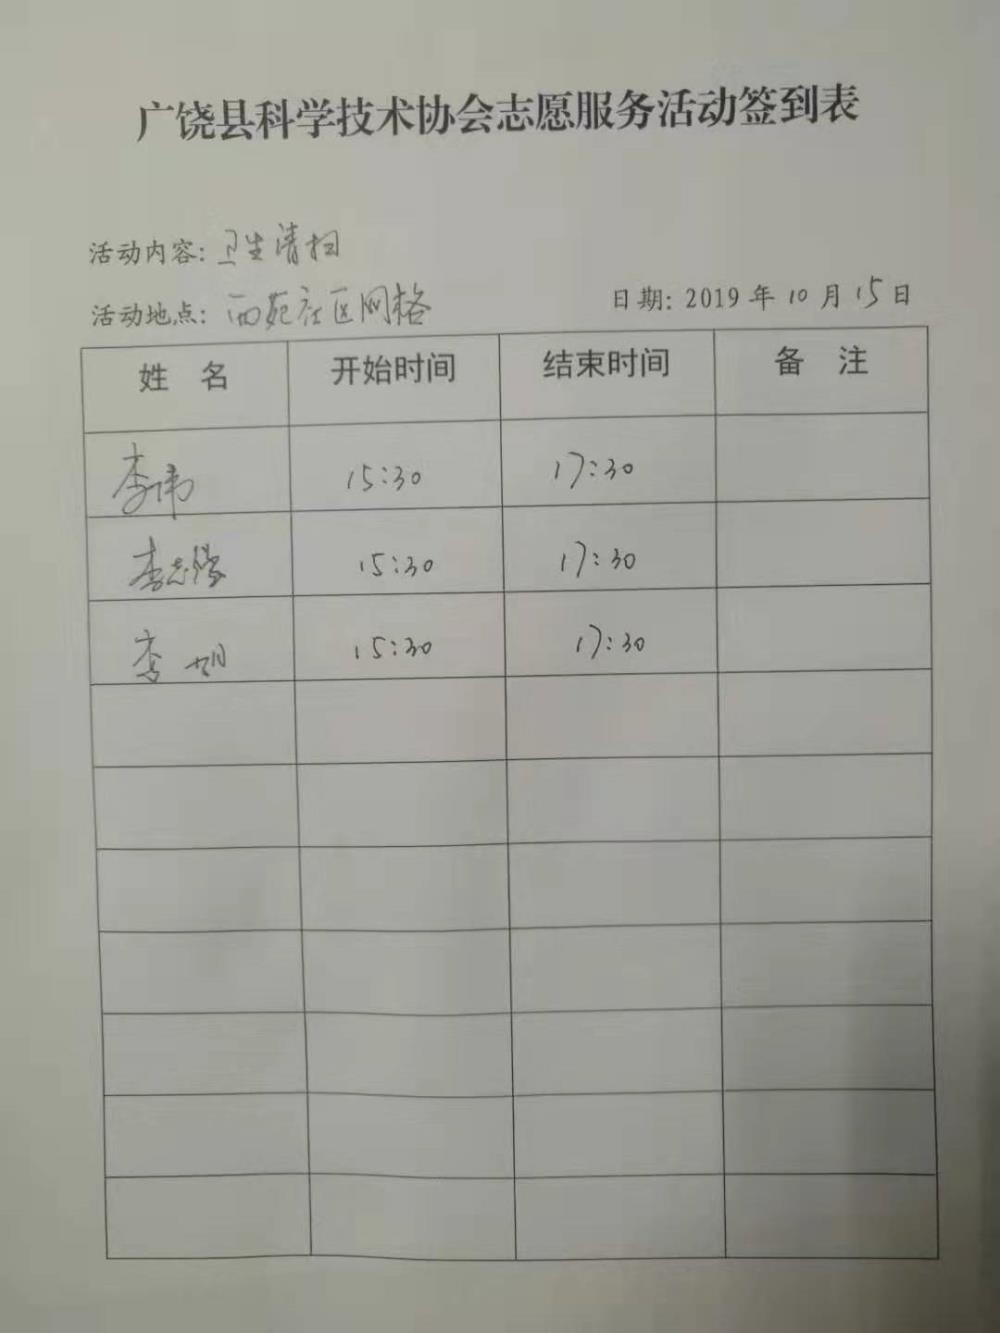 广饶县科学技术协会志愿服务活动签到表
活动内容: 卫生清扫
活动地点: 西苑社区网格 日期: 2019 年 10 月 15 日
姓 名 开始时间 结束时间 备 注
李伟 15:30 17:30
李志 15:30 17:30
李旭 15:30 17:30